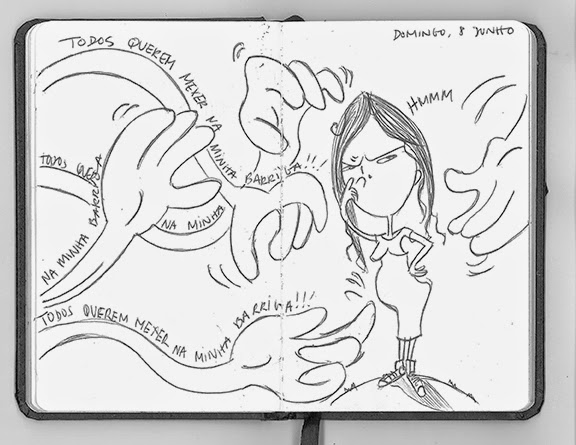 DOMINGO, 8 JUNHO
TODOS QUEREM MEXER NA MINHA BARRIGA!!!
HMMM
TODOS QUER
NA MINHA BARRIGA
NA MINHA
TODOS QUEREM MEXER NA MINHA BARRIGA!!!